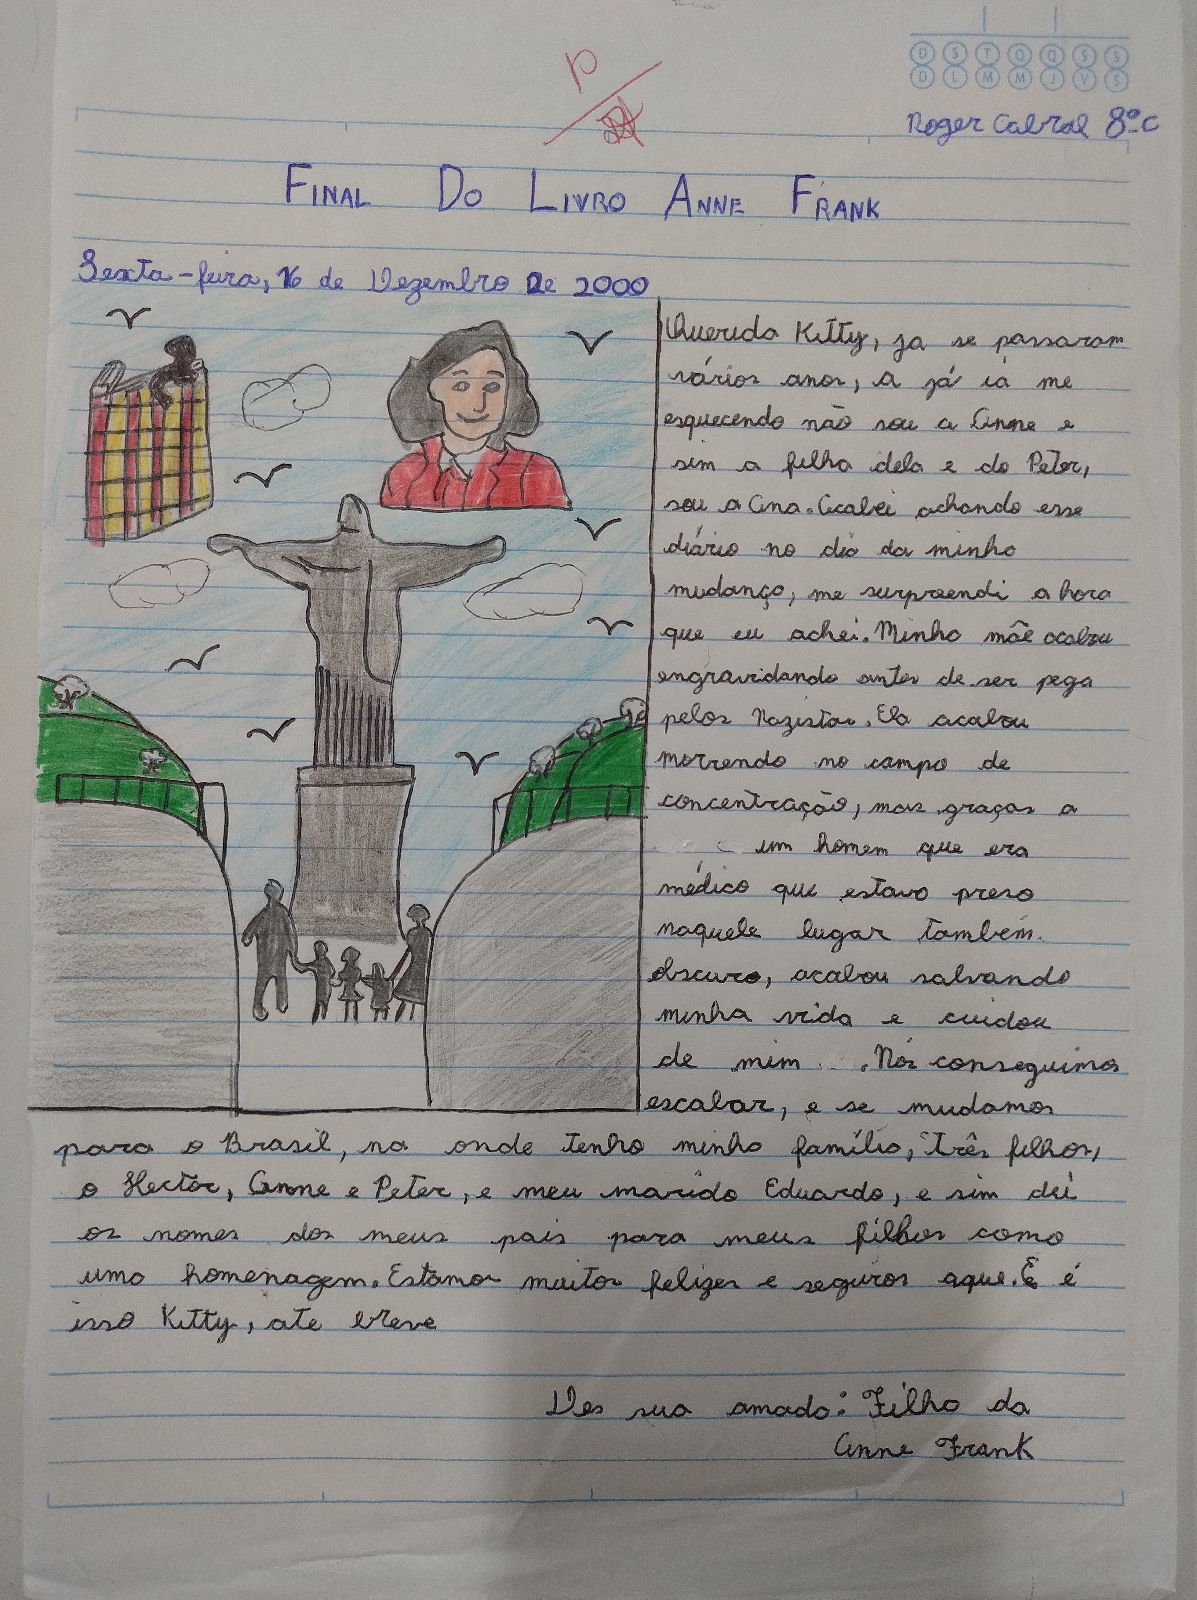 D S T Q Q S S
D L M M J V S
P
Roger Cabral 8ºC
FINAL DO LIVRO ANNE FRANK
Sexta-feira, 16 de Dezembro De 2000
Querida Kitty, ja se passaram
vários anos, a já ia me
esquecendo não sou a Anne e
sim a filha dela e do Peter,
sou a Ana. Acabei achando esse
diário no dia da minha
mudança, me surpreendi a hora
que eu achei. Minha mãe acabou
engravidando antes de ser pega
pelos Nazistas. Ela acabou
morrendo no campo de
concentração, mas graças a
um homem que era
médico que estava preso
naquele lugar também
obscuro, acabou salvando
minha vida e cuidou
de mim. Nós conseguimos
escabar, e se mudamos
para o Brasil, na onde tenho minha família, três filhos,
o Hector, Anne e Peter, e meu marido Eduardo, e sim dei
os nomes dos meus pais para meus filhos como
uma homenagem. Estamos muitos felizes e seguros aque. E é
isso Kitty, ate breve
Des sua amada: Filha da
Anne Frank